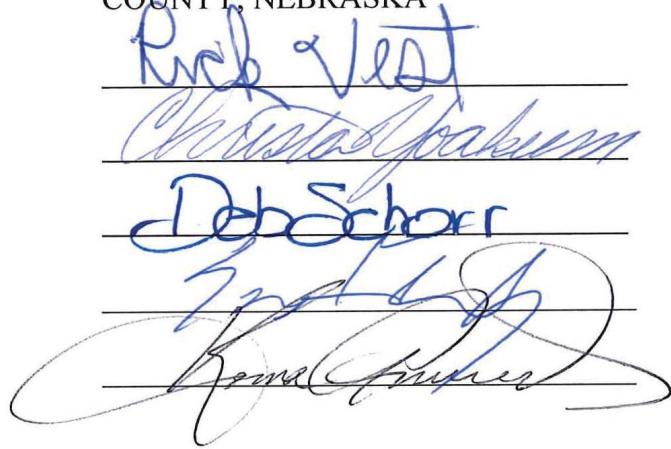 COUNTY, NEBRASKA
Rick Vest
Christa Yoakum
Deb Schorr
Roma Amundson